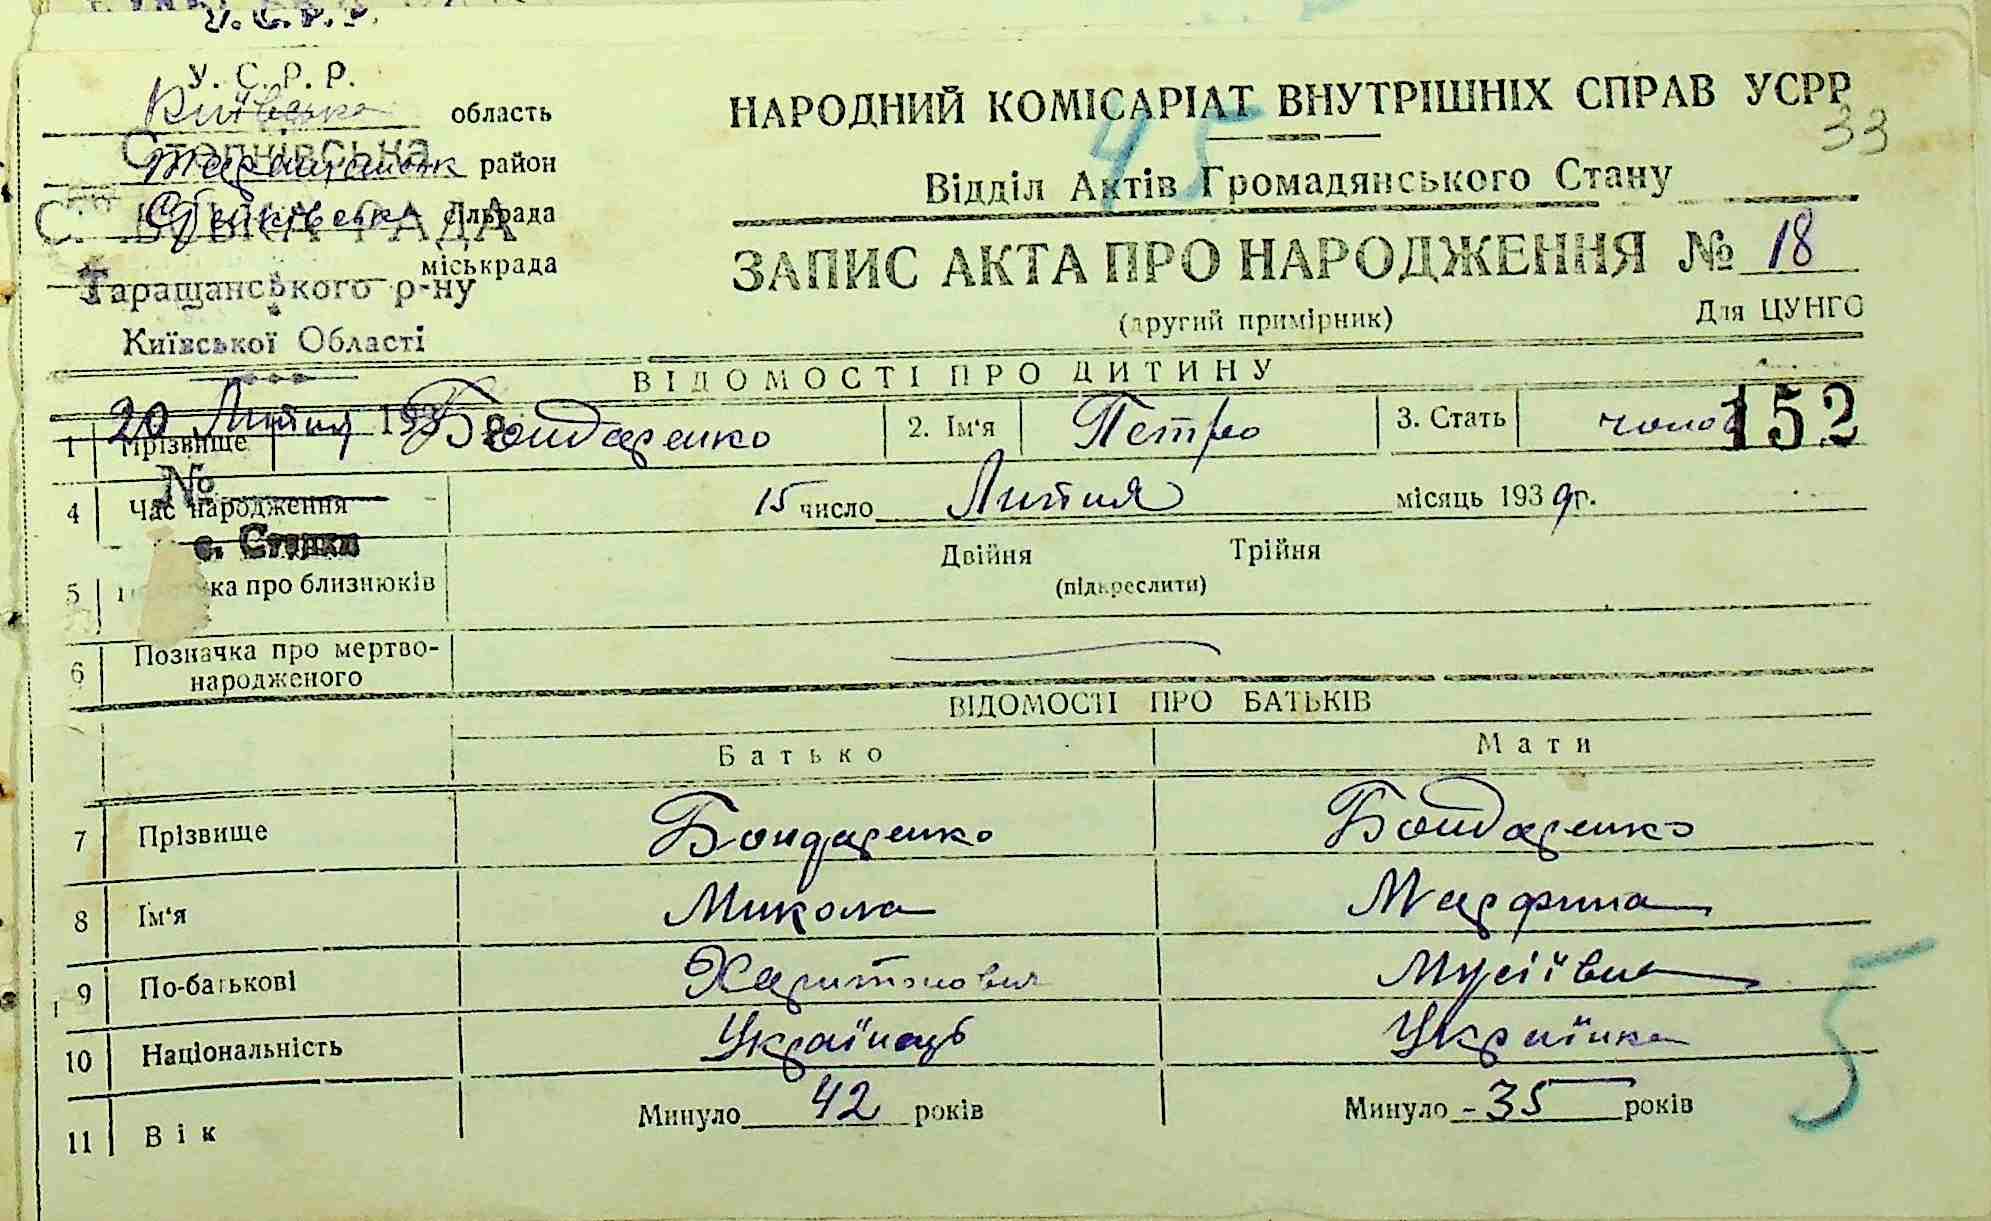 У. С. Р. Р.
Київська область
Таращанськ район
Степківська сільрада
міськрада
Степківська
РАДА
Таращанського р-ну
Київської Області
20 Липня 193
№
с. Степки
НАРОДНИЙ КОМІСАРІАТ ВНУТРІШНІХ СПРАВ УСРР
33
45
Відділ Актів Громадянського Стану
ЗАПИС АКТА ПРО НАРОДЖЕННЯ № 18
(другий примірник) Для ЦУНГО
ВІДОМОСТІ ПРО ДИТИНУ
1 Прізвище Бондаренко 2. Ім'я Петро 3. Стать чолов 152
4 Час народження 15 число Липня місяць 1939 г.
5 про близнюків Двійня Трійня
(підкреслити)
6 Позначка про мертво-
народженого
ВІДОМОСТІ ПРО БАТЬКІВ
Батько Мати
7 Прізвище Бондаренко Бондаренко
8 Ім'я Микола Марфина
9 По-батькові Харитонович Мусіївна
10 Національність Українець Українка
11 Вік Минуло 42 років Минуло 35 років
5